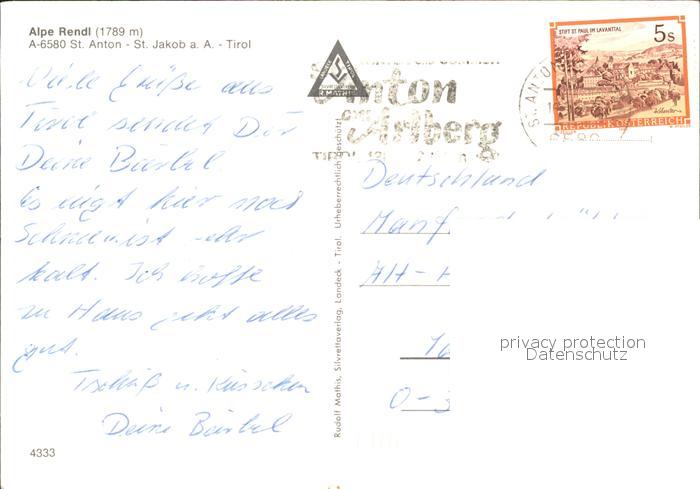 Alpe Rendl (1789 m)
A-6580 St. Anton - St. Jakob a. A. - Tirol
Viele Grüße aus
Tirol sendet Dir
Deine Bärbel
Es liegt hier noch
Schnee ist aber
kalt. Ich hoffe
zu Haus geht alles
gut.
Tschüß u. Küsschen
Deine Bärbel
4333
Rudolf Mathis, Silvrettaverlag, Landeck - Tirol. Urheberrechtlich geschützt
R. MATHIS
Anton
am
Arlberg
ST. ANTON
6580
STIFT ST. PAUL IM LAVANTTAL
5s
REPUBLIK ÖSTERREICH
Deutschland
Manf
Alt-
O-3
privacy protection
Datenschutz